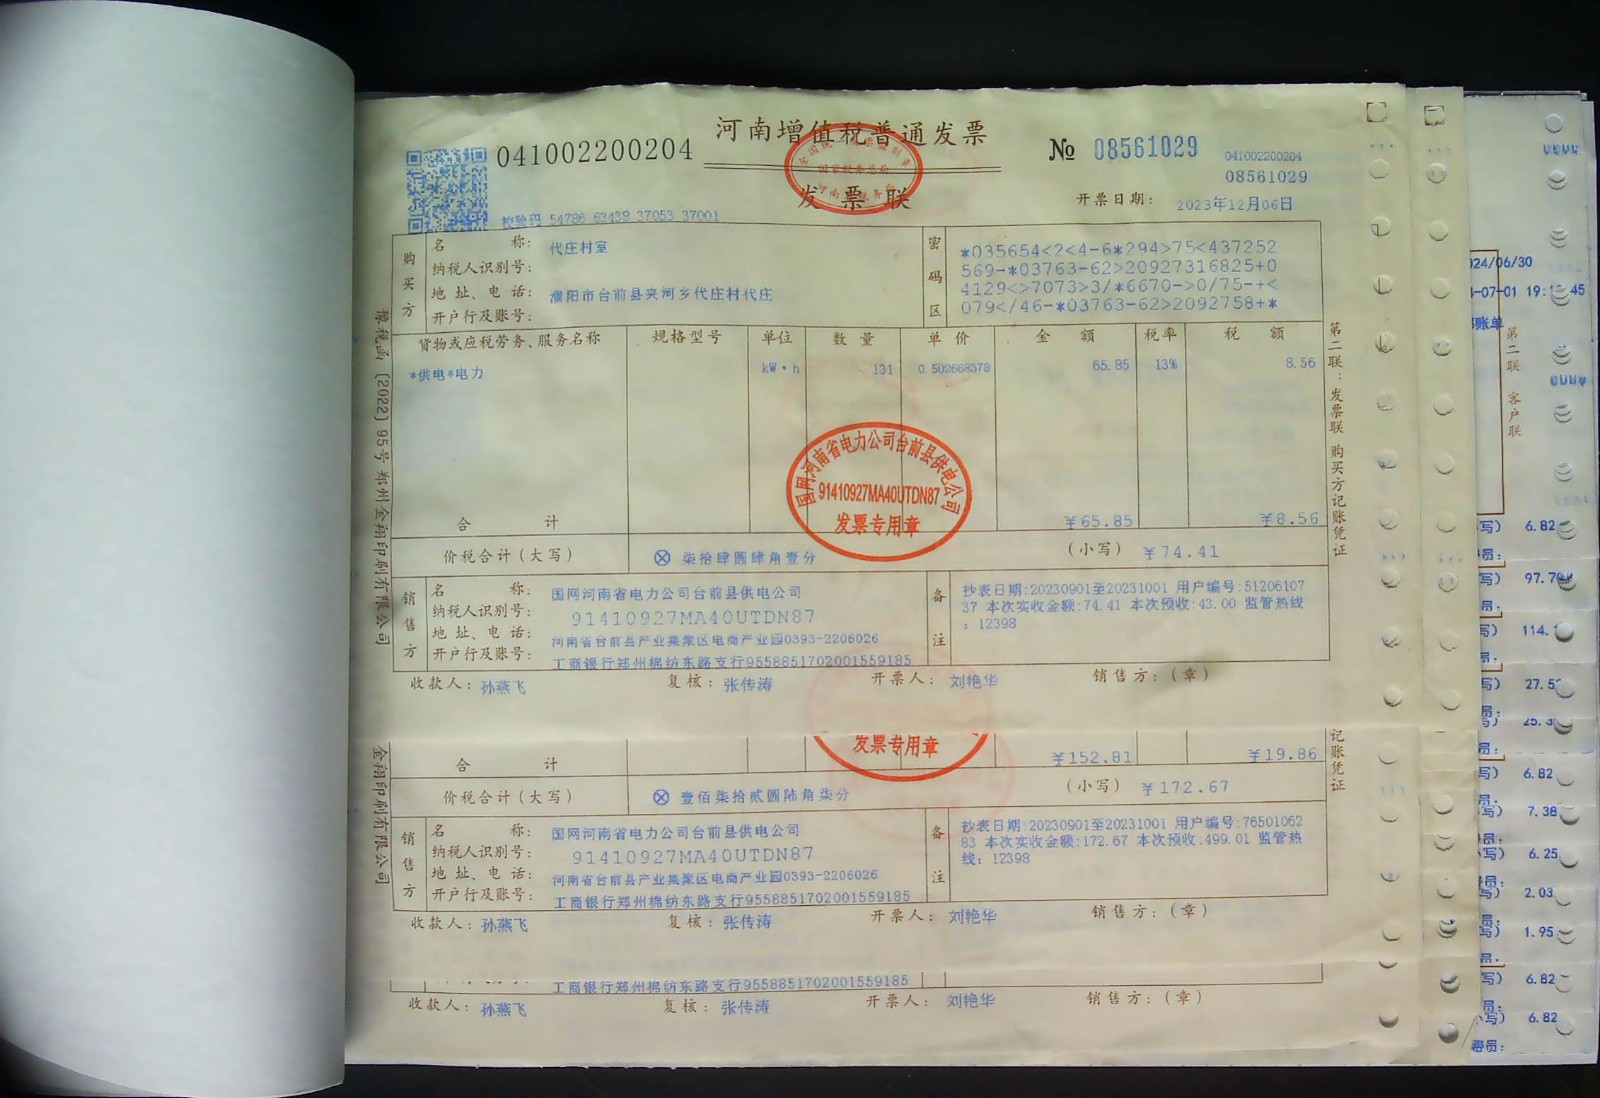 河南增值税普通发票
发票联
041002200204
№ 08561029
041002200204
08561029
开票日期： 2023年12月06日
校验码 54786 63439 37053 37001
购买方
名称： 代庄村室
纳税人识别号：
地址、电话： 濮阳市台前县夹河乡代庄村代庄
开户行及账号：
密码区
*035654<2<4-6*294>75<437252
569-*03763-62>20927316825+0
4129<>7073>3/*6670->0/75-+<
079</46-*03763-62>2092758+*
货物或应税劳务、服务名称 规格型号 单位 数量 单价 金额 税率 税额
*供电*电力 kW·h 131 0.502668378 65.85 13% 8.56
国网河南省电力公司台前县供电公司
91410927MA40UTDN87
发票专用章
合计 ¥65.85 ¥8.56
价税合计（大写） ⊗ 柒拾肆圆肆角壹分 （小写） ¥74.41
销售方
名称： 国网河南省电力公司台前县供电公司
纳税人识别号： 91410927MA40UTDN87
地址、电话： 河南省台前县产业集聚区电商产业园0393-2206026
开户行及账号： 工商银行郑州棉纺东路支行9558851702001559185
备注
抄表日期:20230901至20231001 用户编号:51206107
37 本次实收金额:74.41 本次预收:43.00 监管热线
：12398
收款人： 孙燕飞 复核： 张传涛 开票人： 刘艳华 销售方：（章）
豫税函〔2022〕95号 郑州金翔印刷有限公司
第二联：发票联 购买方记账凭证
发票专用章
合计 ¥152.81 ¥19.86
价税合计（大写） ⊗ 壹佰柒拾贰圆陆角柒分 （小写） ¥172.67
销售方
名称： 国网河南省电力公司台前县供电公司
纳税人识别号： 91410927MA40UTDN87
地址、电话： 河南省台前县产业集聚区电商产业园0393-2206026
开户行及账号： 工商银行郑州棉纺东路支行9558851702001559185
备注
抄表日期:20230901至20231001 用户编号:76501062
83 本次实收金额:172.67 本次预收:499.01 监管热
线：12398
收款人： 孙燕飞 复核： 张传涛 开票人： 刘艳华 销售方：（章）
金翔印刷有限公司
记账凭证
工商银行郑州棉纺东路支行9558851702001559185
收款人： 孙燕飞 复核： 张传涛 开票人： 刘艳华 销售方：（章）
24/06/30
-07-01 19:
账单
第二联 客户联
写） 6.82
员：
写） 97.7
员：
写） 114.
员：
写） 27.5
员：
写） 25.3
员：
写） 6.82
员：
写） 7.38
员：
写） 6.25
员：
写） 2.03
员：
写） 1.95
员：
写） 6.82
员：
写） 6.82
费员：